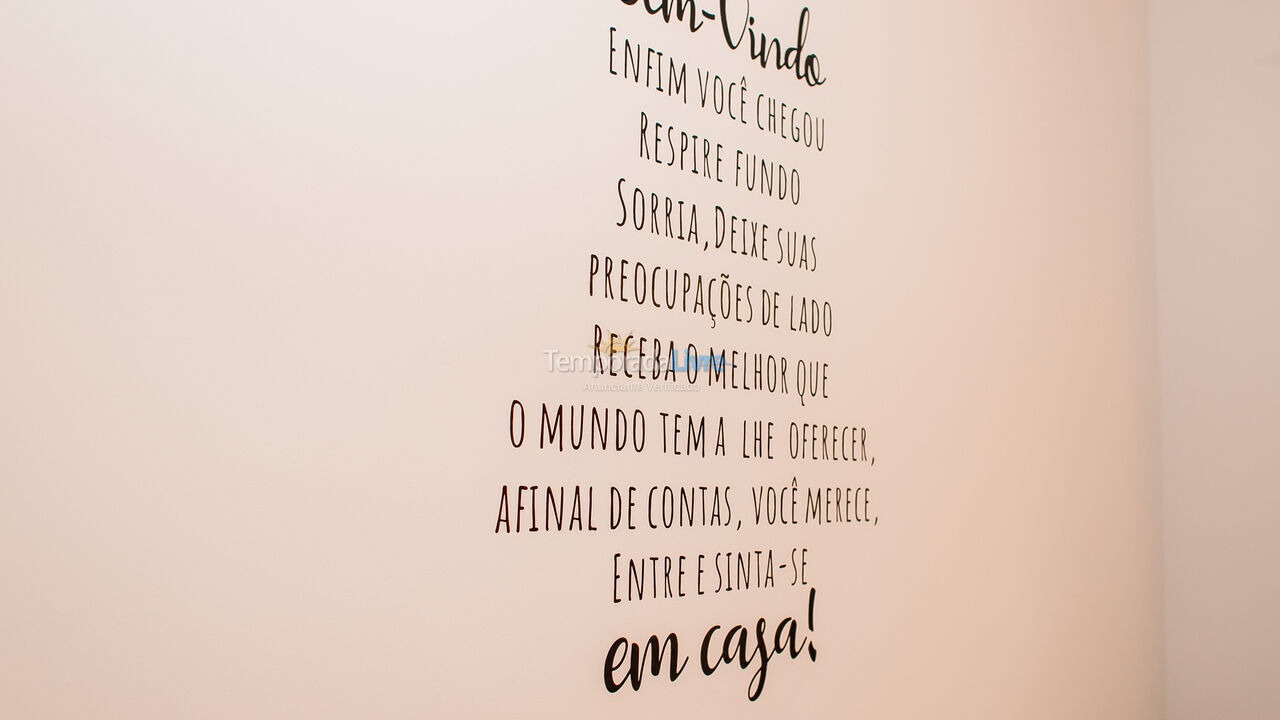 Bem-Vindo
ENFIM VOCÊ CHEGOU
RESPIRE FUNDO
SORRIA, DEIXE SUAS
PREOCUPAÇÕES DE LADO
RECEBA O MELHOR QUE
O MUNDO TEM A LHE OFERECER,
AFINAL DE CONTAS, VOCÊ MERECE,
ENTRE E SINTA-SE
em casa!
TemporadaLivre
Anunciante Verificado